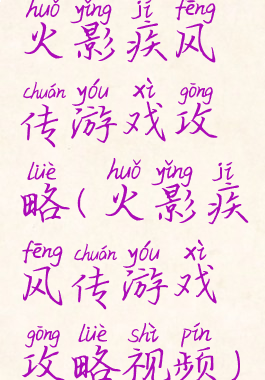 huǒ yǐng jí fēng
火影疾风
chuán yóu xì gōng
传游戏攻
lüè huǒ yǐng jí
略(火影疾
fēng chuán yóu xì
风传游戏
gōng lüè shì pín
攻略视频)